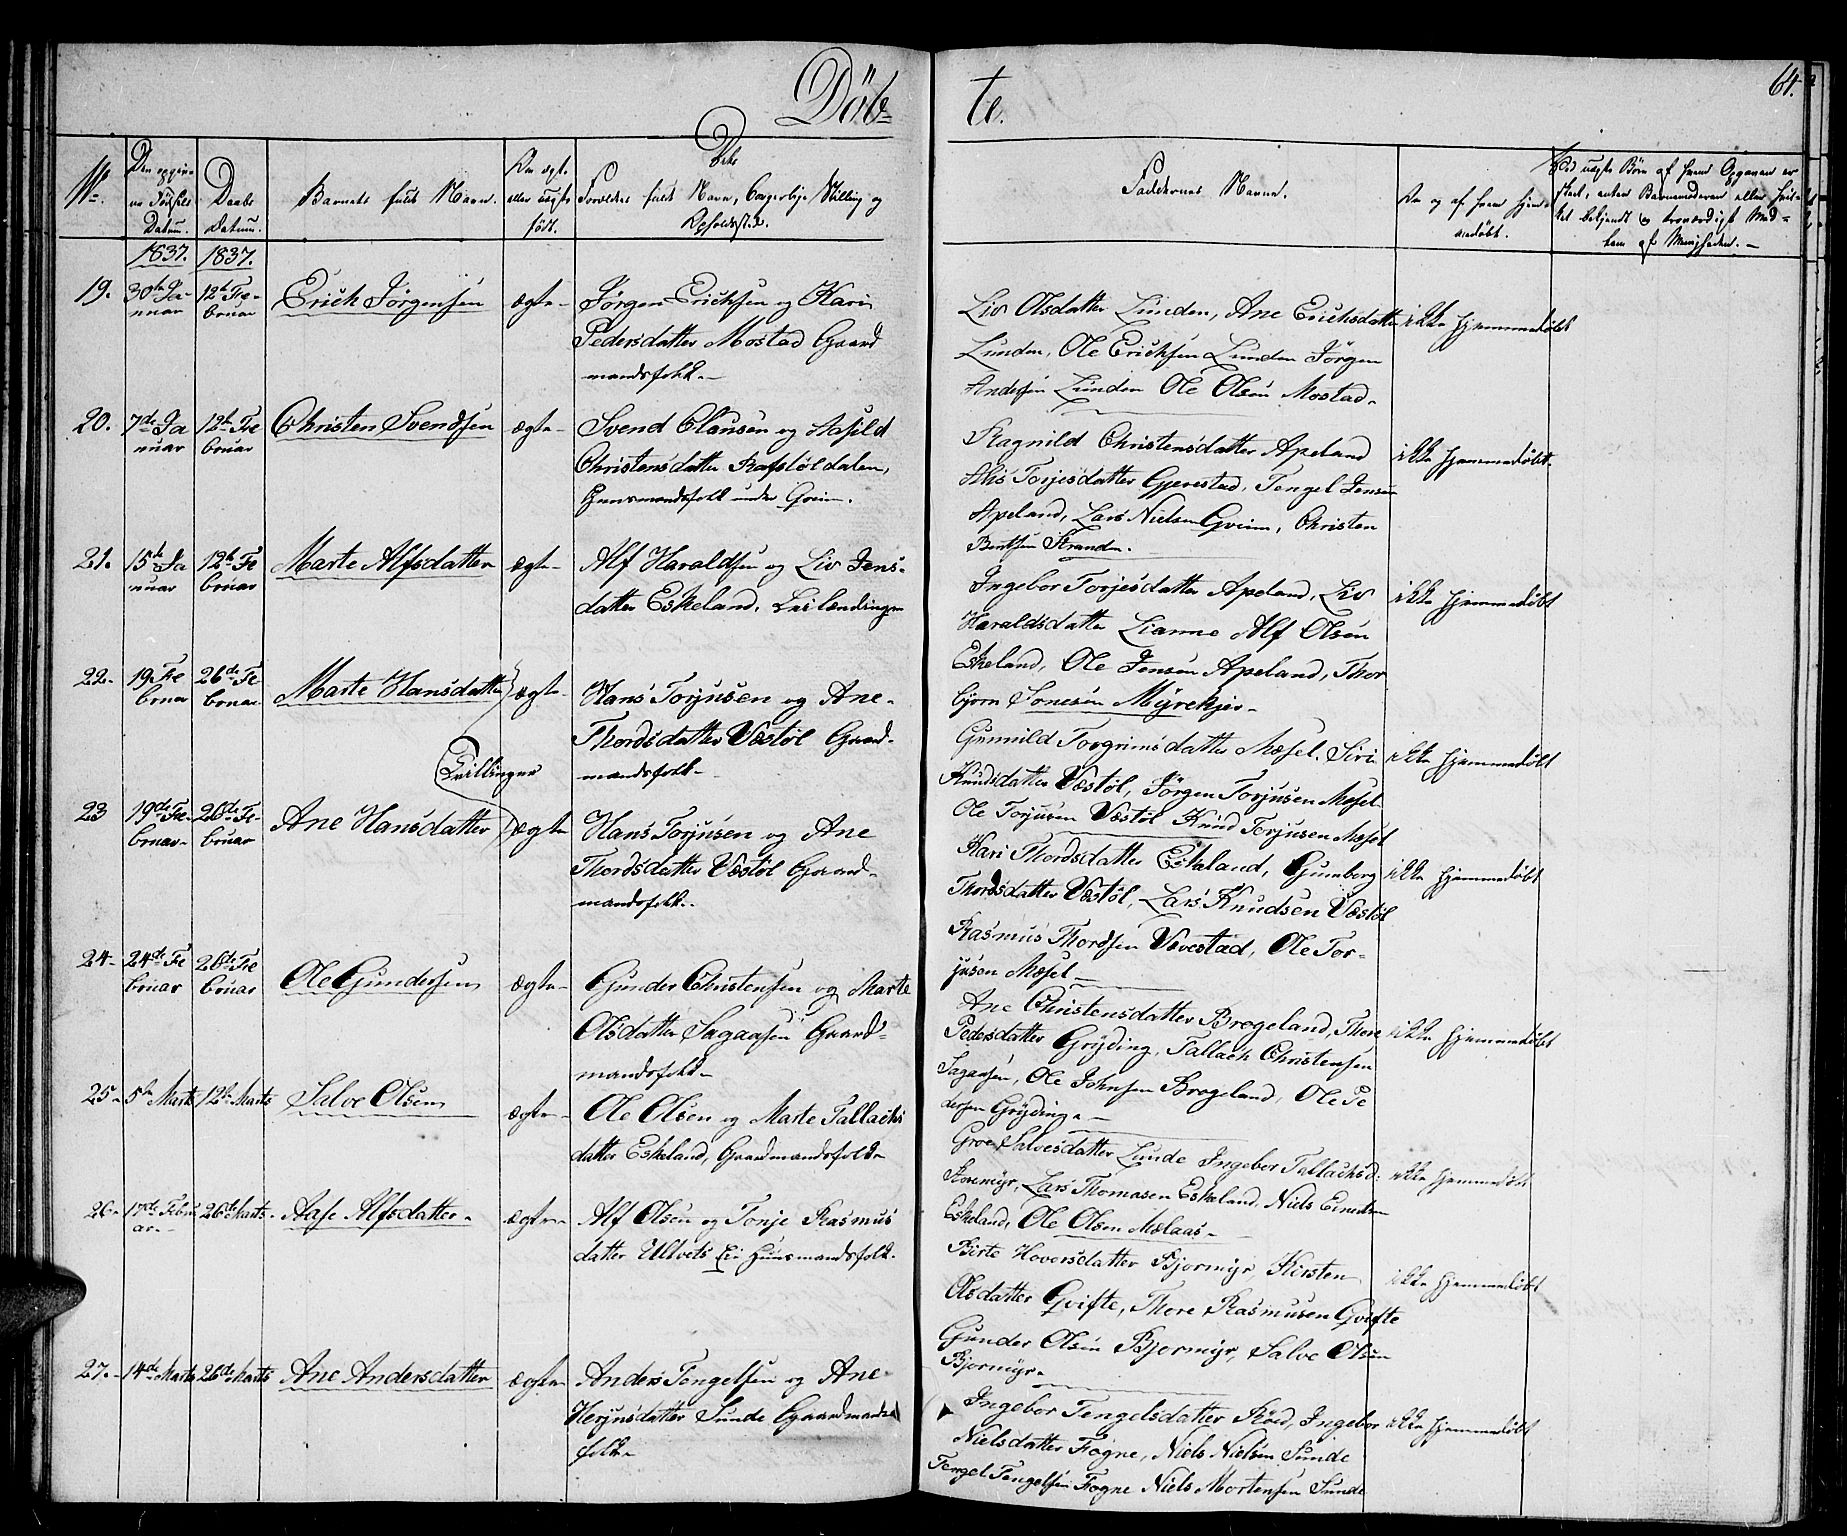 Döb-
te.
64.
No.
Den opgiv-
ne Födsels
Datum.
Daabs
Datum.
Barnets fulde Navn.
Om ægte
eller uægte
født.
Dele
Forældres fulde Navn, borgerlige Stilling og
Opholdssted.
Faddernes Navne.
Om og af hvem hjem-
medøbt.
Ved uægte Börn af hvem Opgaven er
skeet, enten Barnemoderen eller hvil-
ket bekjendt og troværdigt Med-
lem af Menigheden.
1837. 1837.
19. 30te Ja-
nuar
12te Fe-
bruar
Erich Jörgensen
ægte
Jörgen Erichsen og Kari
Pedersdatter Mostad Gaard
mandsfolk
Liv Olsdatter Lunden, Ane Erichsdatter
Lunden, Ole Erichsen Lunden Jörgen
Andersen Lunden Ole Olsen Mostad
ikke hjemmedøbt
20. 7de Ja
nuar
12te Fe
bruar
Christen Svendsen
ægte
Svend Clausen og Aasild
Christensdatter Rafstöldalen,
Huusmandsfolk under Gveim.
Ragnild Christensdatter Apeland
Alis Torjesdatter Gjerestad, Tengel Jensen
Apeland, Lars Nielsen Gveim, Christen
Bentsen Stranden.
ikke hjemmedøbt
21. 15de Ja
nuar
12te Fe
bruar
Marte Alfsdatter
ægte
Alf Haraldsen og Liv Jens-
datter Eskeland, Leilændinger
Ingebor Torjesdatter Apeland, Liv
Haraldsdatter Lianne Alf Olsen
Eskeland, Ole Jensen Apeland, Thor
bjorn Sonesen Myrekjer
ikke hjemmedøbt
22. 19. Fe
bruar
26de Fe
bruar
Marte Hansdatter
ægte
Hans Torjusen og Ane
Thordsdatter Væstöl Gaard-
mandsfolk
Gunnild Torgrimsdatter Mæsel. Siri
Knudsdatter Væstöl, Jörgen Torjusen Mæsel
Ole Torjusen Væstöl Knud Torjusen Mæsel
ikke hjemmedøbt
Tvillinger
23 19de Fe-
bruar
26de Fe-
bruar
Ane Hansdatter
ægte
Hans Torjusen og Ane
Thordsdatter Væstöl Gaard-
mandsfolk.
Kari Thordsdatter Eskeland, Gunborg
Thordsdatter Væstöl, Lars Knudsen Væstöl
Rasmus Thordsen Vævestad, Ole Tor-
jusen Mæsel
ikke hjemmedøbt
24 24de Fe
bruar
26de Fe
bruar
Ole Gundersen
ægte
Gunder Christensen og Marte
Olsdatter Sagaasen Gaard-
mandsfolk
Ane Christensdatter Brogeland, Thore
Pedersdatter Gryding, Tallach Christensen
Sagaasen, Ole Johnsen Brogeland, Ole Pe
dersen Gryding
ikke hjemmedøbt
25 5te Marts
12te Marts
Salve Olsen
ægte
Ole Olsen og Marte Tallachs
datter Eskeland, Gaardmandsfolk
Groe Salvesdatter Lunde Ingebor Tallachsd.
Storemyr, Lars Thomasen Eskeland, Niels Evindsen
Eskeland, Ole Olsen Mælaas
ikke hjemmedøbt
26 17de Febru
ar
26de Marts
Aase Alfsdatter
ægte
Alf Olsen og Tonje Rasmus
datter Ulltvets Eie Huusmandsfolk
Birte Hoversdatter Bjormyr, Kirsten
Olsdatter Gvifte, Thore Rasmusen Gvifte
Gunder Olsen Bjormyr, Salve Olsen
Bjormyr
ikke hjemmedøbt
27. 14de Marts
26de Marts
Ane Andersdatter
ægte
Anders Tengelsen og Ane
Herjusdatter Sunde Gaardmands
folk
Ingebor Tengelsdatter Röed, Ingebor
Nielsdatter Fogne, Niels Nielsen Sunde
Tengel Tengelsen Fogne Niels Mortensen Sunde
ikke hjemmedøbt